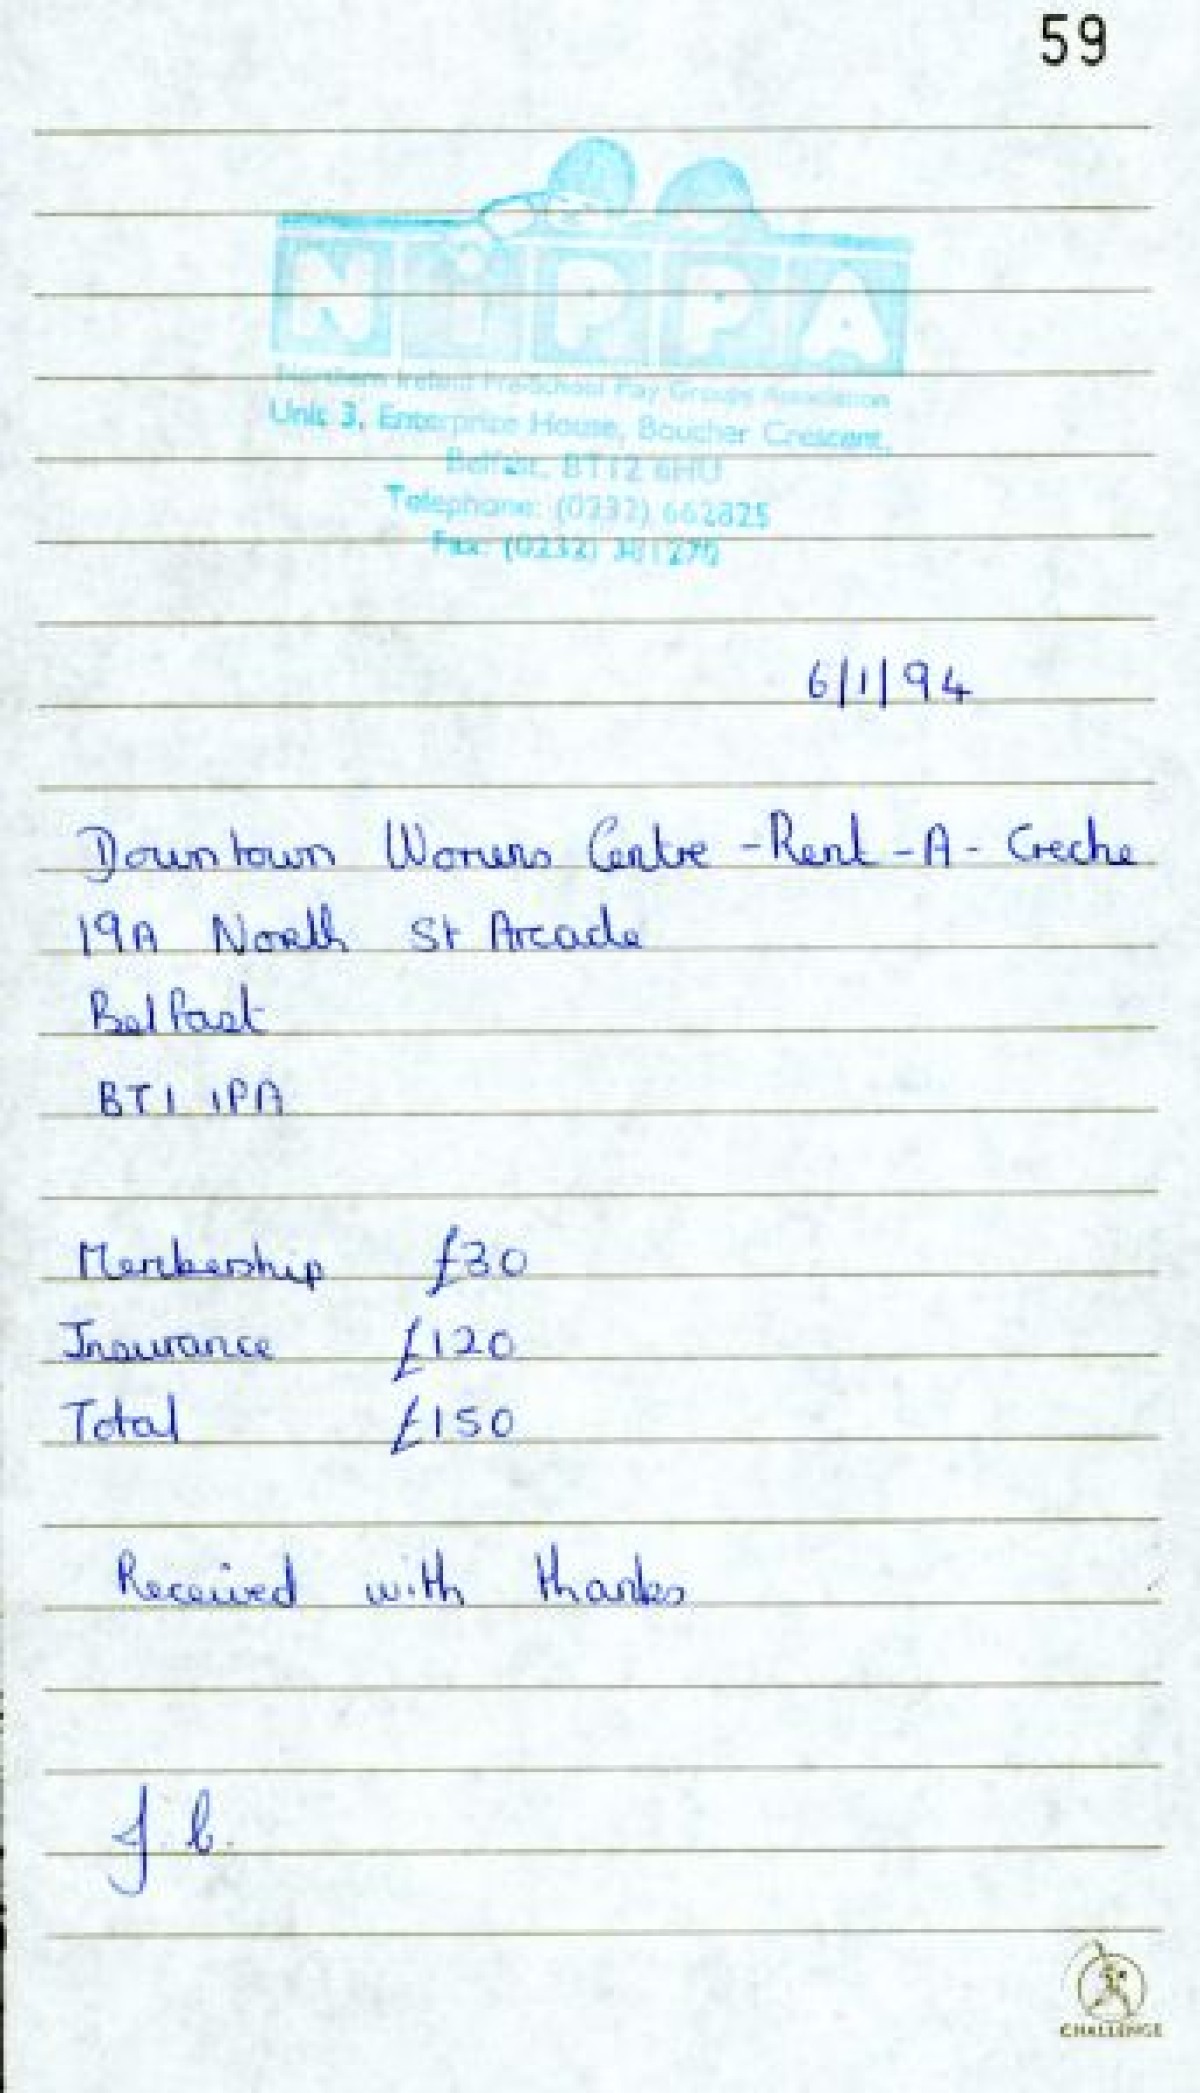 59
NiPPA
Northern Ireland Pre-School Play Groups Association
Unit 3, Enterprize House, Boucher Crescent,
Belfast, BT12 6HU
Telephone: (0232) 662825
Fax: (0232) 381270
6/1/94
Downtown Womens Centre - Rent - A - Creche
19A North St Arcade
Belfast
BT1 1PA
Membership £30
Insurance £120
Total £150
Received with thanks
J. C.
CHALLENGE